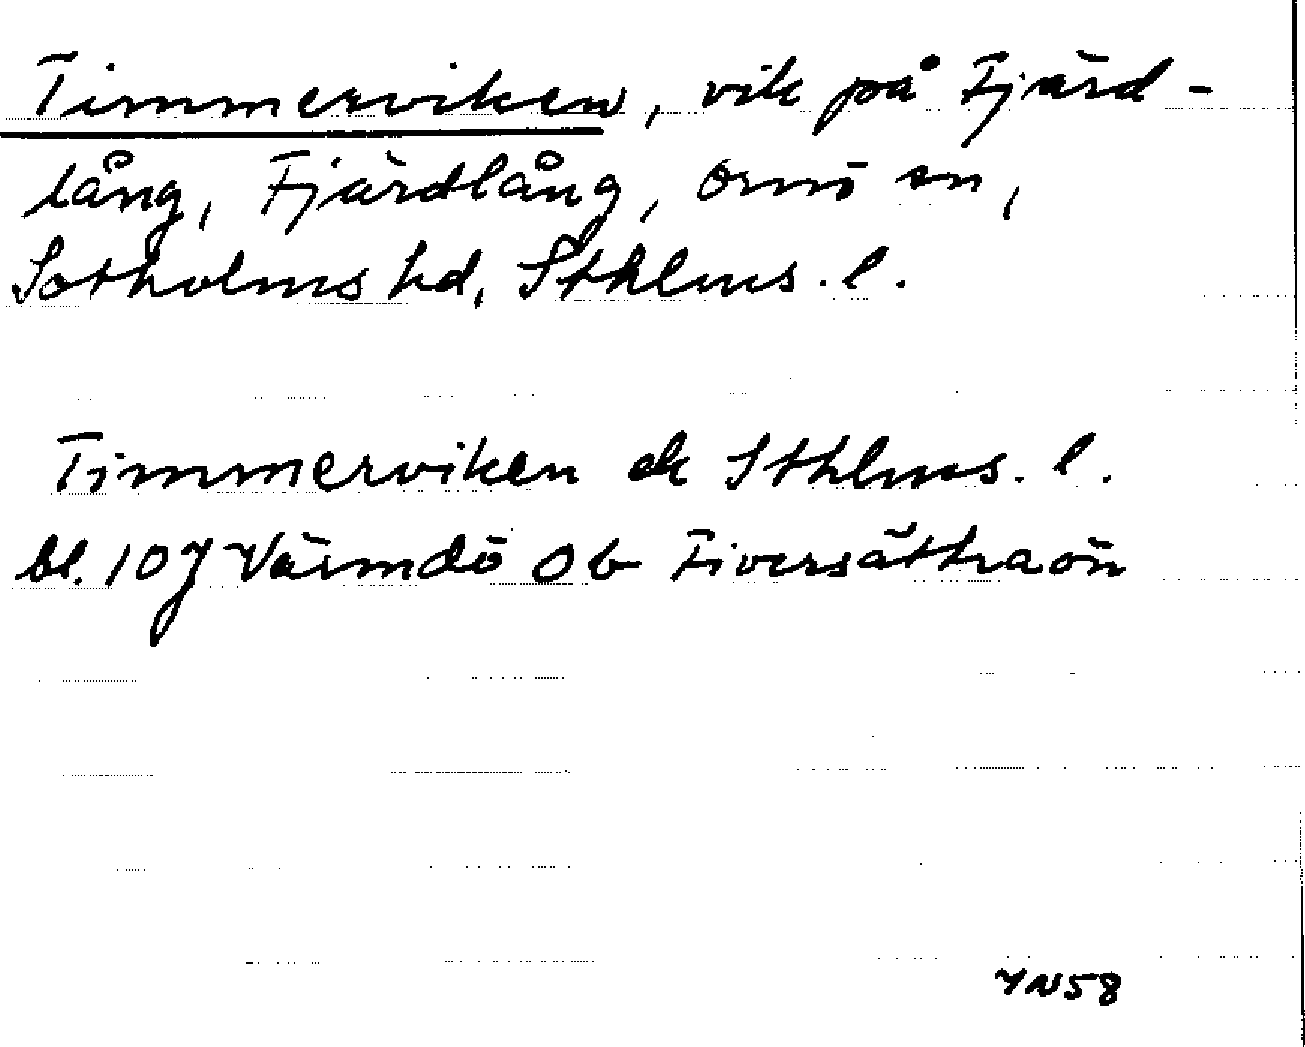 Timmerviken, vik på Fjärd-
lång, Fjärdlång, Ornö sn,
Sotholms hd, Sthlms. l.
Timmerviken ek Sthlms. l.
bl. 10J Värmdö Ob Fiversättraön
YN58